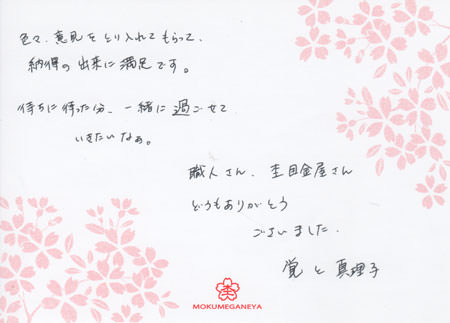 色々、意見をとり入れてもらって、
納得の出来に満足です。
待ちに待った分、一緒に過ごせて
いきたいなぁ。
職人さん、杢目金屋さん
どうもありがとう
ございました。
覚と真理子
杢
MOKUMEGANEYA